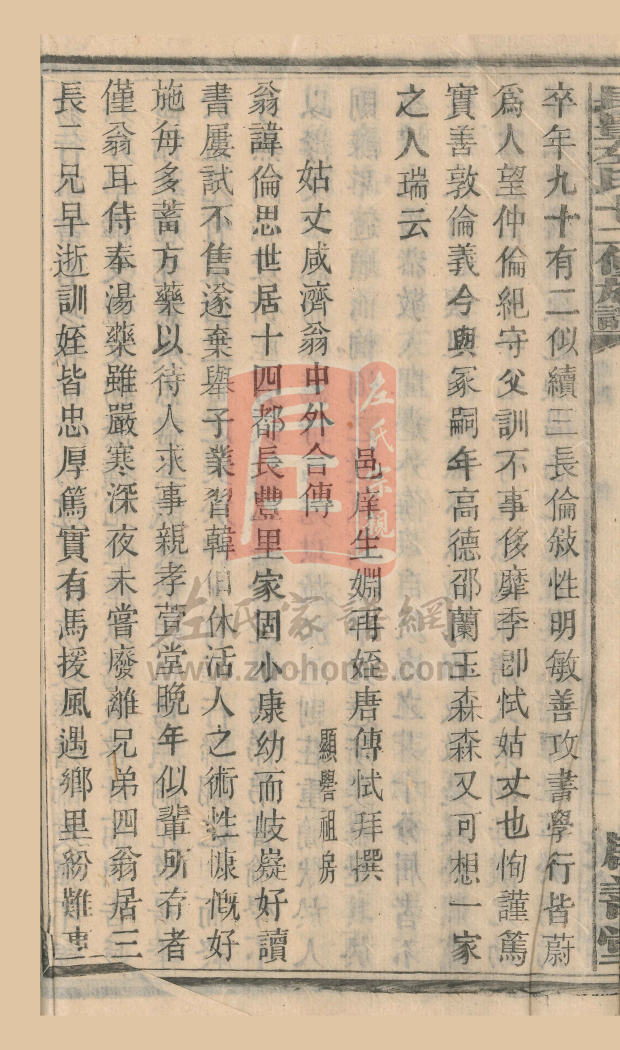 氏十一修族譜
善堂
卒年九十有二似續三長倫敍性明敏善攻書學行皆蔚
爲人望仲倫紀守父訓不事侈靡季卽恜姑丈也恂謹篤
實善敦倫義今與冢嗣年高德邵蘭玉森森又可想一家
之人瑞云
邑庠生婣再姪唐傳恜拜撰
顯譽祖房
姑丈咸濟翁中外合傳
翁諱倫思世居十四都長豐里家固小康幼而岐嶷好讀
書屢試不售遂棄舉子業習韓伯休活人之術性慷慨好
施每多蓄方藥以待人求事親孝萱堂晩年似輩所存者
僅翁耳侍奉湯藥雖嚴寒深夜未嘗廢離兄弟四翁居三
長二兄早逝訓姪皆忠厚篤實有馬援風遇鄉里紛難
左氏宗親
左氏家譜網
www.zuohome.com